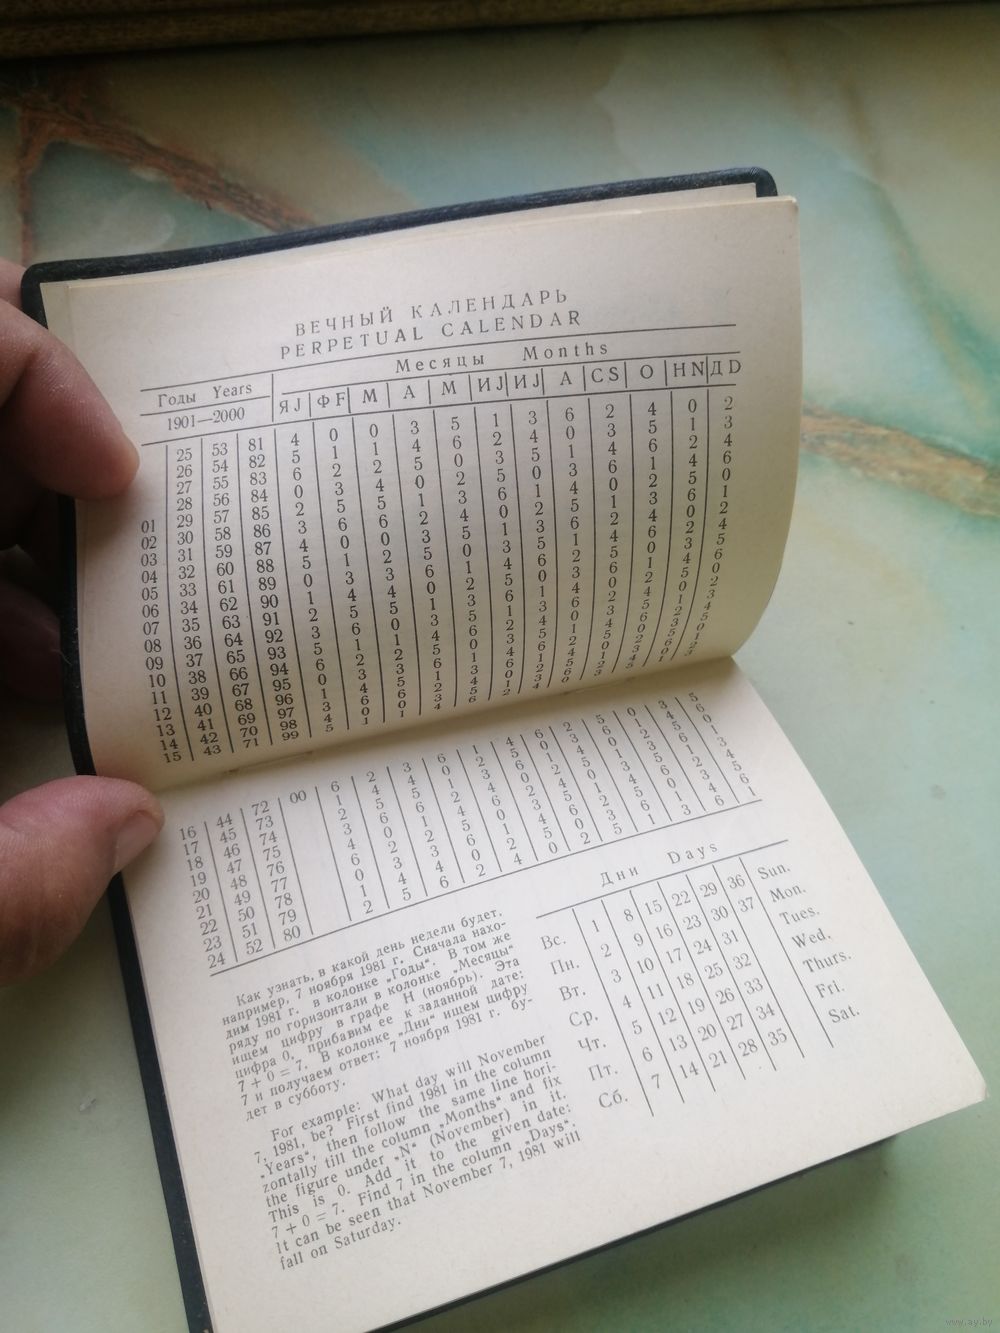 ВЕЧНЫЙ КАЛЕНДАРЬ
PERPETUAL CALENDAR
Годы Years Месяцы Months
1901—2000 Я J Ф F М А М И J И J А С S О Н N Д D
25 53 81 4 0 0 3 5 1 3 6 2 4 0 2
26 54 82 5 1 1 4 6 2 4 0 3 5 1 3
27 55 83 6 2 2 5 0 3 5 1 4 6 2 4
28 56 84 0 3 4 0 2 5 0 3 6 1 4 6
01 29 57 85 2 5 5 1 3 6 1 4 0 2 5 0
02 30 58 86 3 6 6 2 4 0 2 5 1 3 6 1
03 31 59 87 4 0 0 3 5 1 3 6 2 4 0 2
04 32 60 88 5 1 2 5 0 3 5 1 4 6 2 4
05 33 61 89 0 3 3 6 1 4 6 2 5 0 3 5
06 34 62 90 1 4 4 0 2 5 0 3 6 1 4 6
07 35 63 91 2 5 5 1 3 6 1 4 0 2 5 0
08 36 64 92 3 6 0 3 5 1 3 6 2 4 0 2
09 37 65 93 5 1 1 4 6 2 4 0 3 5 1 3
10 38 66 94 6 2 2 5 0 3 5 1 4 6 2 4
11 39 67 95 0 3 3 6 1 4 6 2 5 0 3 5
12 40 68 96 1 4 5 1 3 6 1 4 0 2 5 0
13 41 69 97 3 6 6 2 4 0 2 5 1 3 6 1
14 42 70 98 4 0 0 3 5 1 3 6 2 4 0 2
15 43 71 99 5 1 1 4 6 2 4 0 3 5 1 3
16 44 72 00 6 2 3 6 1 4 6 2 5 0 3 5
17 45 73 1 4 4 0 2 5 0 3 6 1 4 6
18 46 74 2 5 5 1 3 6 1 4 0 2 5 0
19 47 75 3 6 6 2 4 0 2 5 1 3 6 1
20 48 76 4 0 1 4 6 2 4 0 3 5 1 3
21 49 77 6 2 2 5 0 3 5 1 4 6 2 4
22 50 78 0 3 3 6 1 4 6 2 5 0 3 5
23 51 79 1 4 4 0 2 5 0 3 6 1 4 6
24 52 80 2 5 6 2 4 0 2 5 1 3 6 1
Как узнать, в какой день недели будет,
например, 7 ноября 1981 г. Сначала нахо-
дим 1981 г. в колонке „Годы“. В том же
ряду по горизонтали в колонке „Месяцы“
ищем цифру в графе Н (ноябрь). Эта
цифра 0, прибавим ее к заданной дате:
7 + 0 = 7. В колонке „Дни“ ищем цифру
7 и получаем ответ: 7 ноября 1981 г. бу-
дет в субботу.
For example: What day will November
7, 1981, be? First find 1981 in the column
„Years“, then follow the same line hori-
zontally till the column „Months“ and fix
the figure under „N“ (November) in it.
This is 0. Add it to the given date:
7 + 0 = 7. Find 7 in the column „Days“.
It can be seen that November 7, 1981 will
fall on Saturday.
Дни Days
Вс. 1 8 15 22 29 36 Sun.
Пн. 2 9 16 23 30 37 Mon.
Вт. 3 10 17 24 31 Tues.
Ср. 4 11 18 25 32 Wed.
Чт. 5 12 19 26 33 Thurs.
Пт. 6 13 20 27 34 Fri.
Сб. 7 14 21 28 35 Sat.
www.ay.by